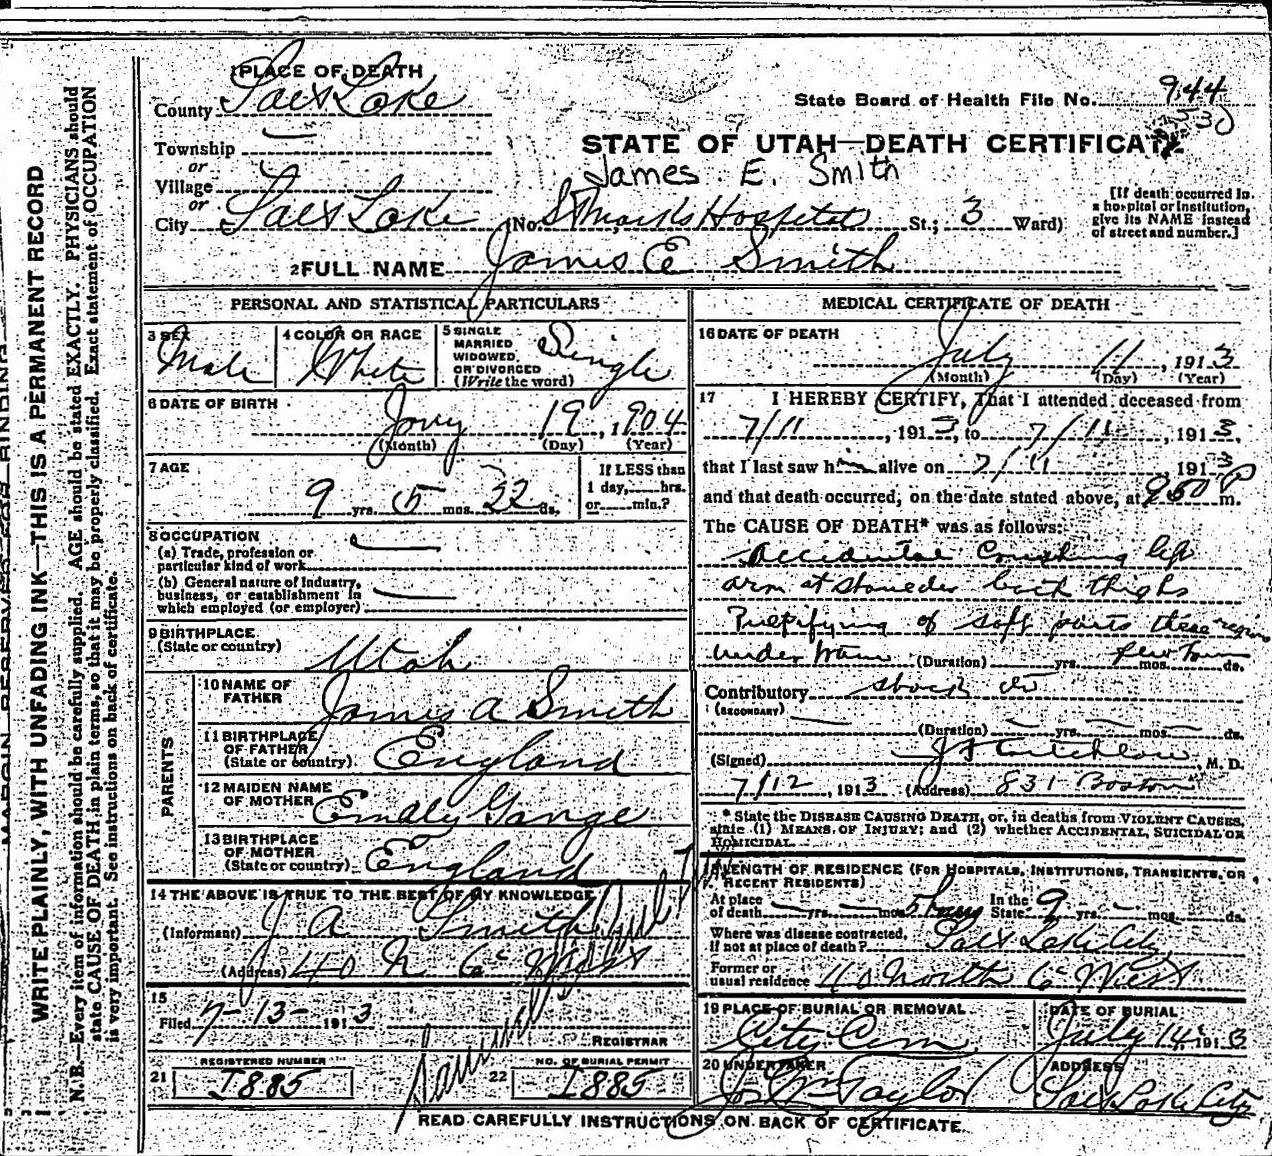 PLACE OF DEATH
County Salt Lake
State Board of Health File No. 944
530
Township
or
Village
or
City Salt Lake
STATE OF UTAH—DEATH CERTIFICATE
James E. Smith
(No. St Marks Hospital St.; 3 Ward)
[If death occurred in
a hospital or institution,
give its NAME instead
of street and number.]
2 FULL NAME James E Smith
PERSONAL AND STATISTICAL PARTICULARS
3 SEX
Male
4 COLOR OR RACE
White
5 SINGLE
MARRIED
WIDOWED
OR DIVORCED
(Write the word)
Single
6 DATE OF BIRTH
Jany 19, 1904
(Month) (Day) (Year)
7 AGE
9 yrs. 5 mos. 22 ds.
If LESS than
1 day, hrs.
or min.?
8 OCCUPATION
(a) Trade, profession or
particular kind of work
(b) General nature of industry,
business, or establishment in
which employed (or employer)
9 BIRTHPLACE
(State or country)
Utah
PARENTS
10 NAME OF
FATHER
James A Smith
11 BIRTHPLACE
OF FATHER
(State or country)
England
12 MAIDEN NAME
OF MOTHER
Emily Gange
13 BIRTHPLACE
OF MOTHER
(State or country)
England
14 THE ABOVE IS TRUE TO THE BEST OF MY KNOWLEDGE
(Informant) J A Smith
(Address) 40 N 6 West
15
Filed 7-13-1913
REGISTRAR
REGISTERED NUMBER
21 I885
NO. OF BURIAL PERMIT
22 I885
MEDICAL CERTIFICATE OF DEATH
16 DATE OF DEATH
July 11, 1913
(Month) (Day) (Year)
17 I HEREBY CERTIFY, That I attended deceased from
7/11, 1913, to 7/11, 1913,
that I last saw him alive on 7/11, 1913
and that death occurred, on the date stated above, at 950 P m.
The CAUSE OF DEATH* was as follows:
Accidental Crushing left
arm at shoulder both thighs
of soft parts these region
under train (Duration) yrs. few hours mos. ds.
Contributory shock
(SECONDARY)
(Duration) yrs. mos. ds.
(Signed) J F Critchlow, M. D.
7/12, 1913 (Address) 831 Boston
* State the DISEASE CAUSING DEATH, or, in deaths from VIOLENT CAUSES,
state (1) MEANS OF INJURY; and (2) whether ACCIDENTAL, SUICIDAL OR
HOMICIDAL.
18 LENGTH OF RESIDENCE (FOR HOSPITALS, INSTITUTIONS, TRANSIENTS, OR
RECENT RESIDENTS)
At place
of death yrs. mos. 5 hours
In the
State 9 yrs. mos. ds.
Where was disease contracted,
if not at place of death? Salt Lake City
Former or
usual residence 40 North 6 West
19 PLACE OF BURIAL OR REMOVAL
City Cem
DATE OF BURIAL
July 14, 1913
20 UNDERTAKER
Jos Wm Taylor
ADDRESS
Salt Lake City
READ CAREFULLY INSTRUCTIONS ON BACK OF CERTIFICATE.
MARGIN RESERVED FOR BINDING
WRITE PLAINLY, WITH UNFADING INK—THIS IS A PERMANENT RECORD
N. B.—Every item of information should be carefully supplied. AGE should be stated EXACTLY. PHYSICIANS should
state CAUSE OF DEATH in plain terms, so that it may be properly classified. Exact statement of OCCUPATION
is very important. See instructions on back of certificate.